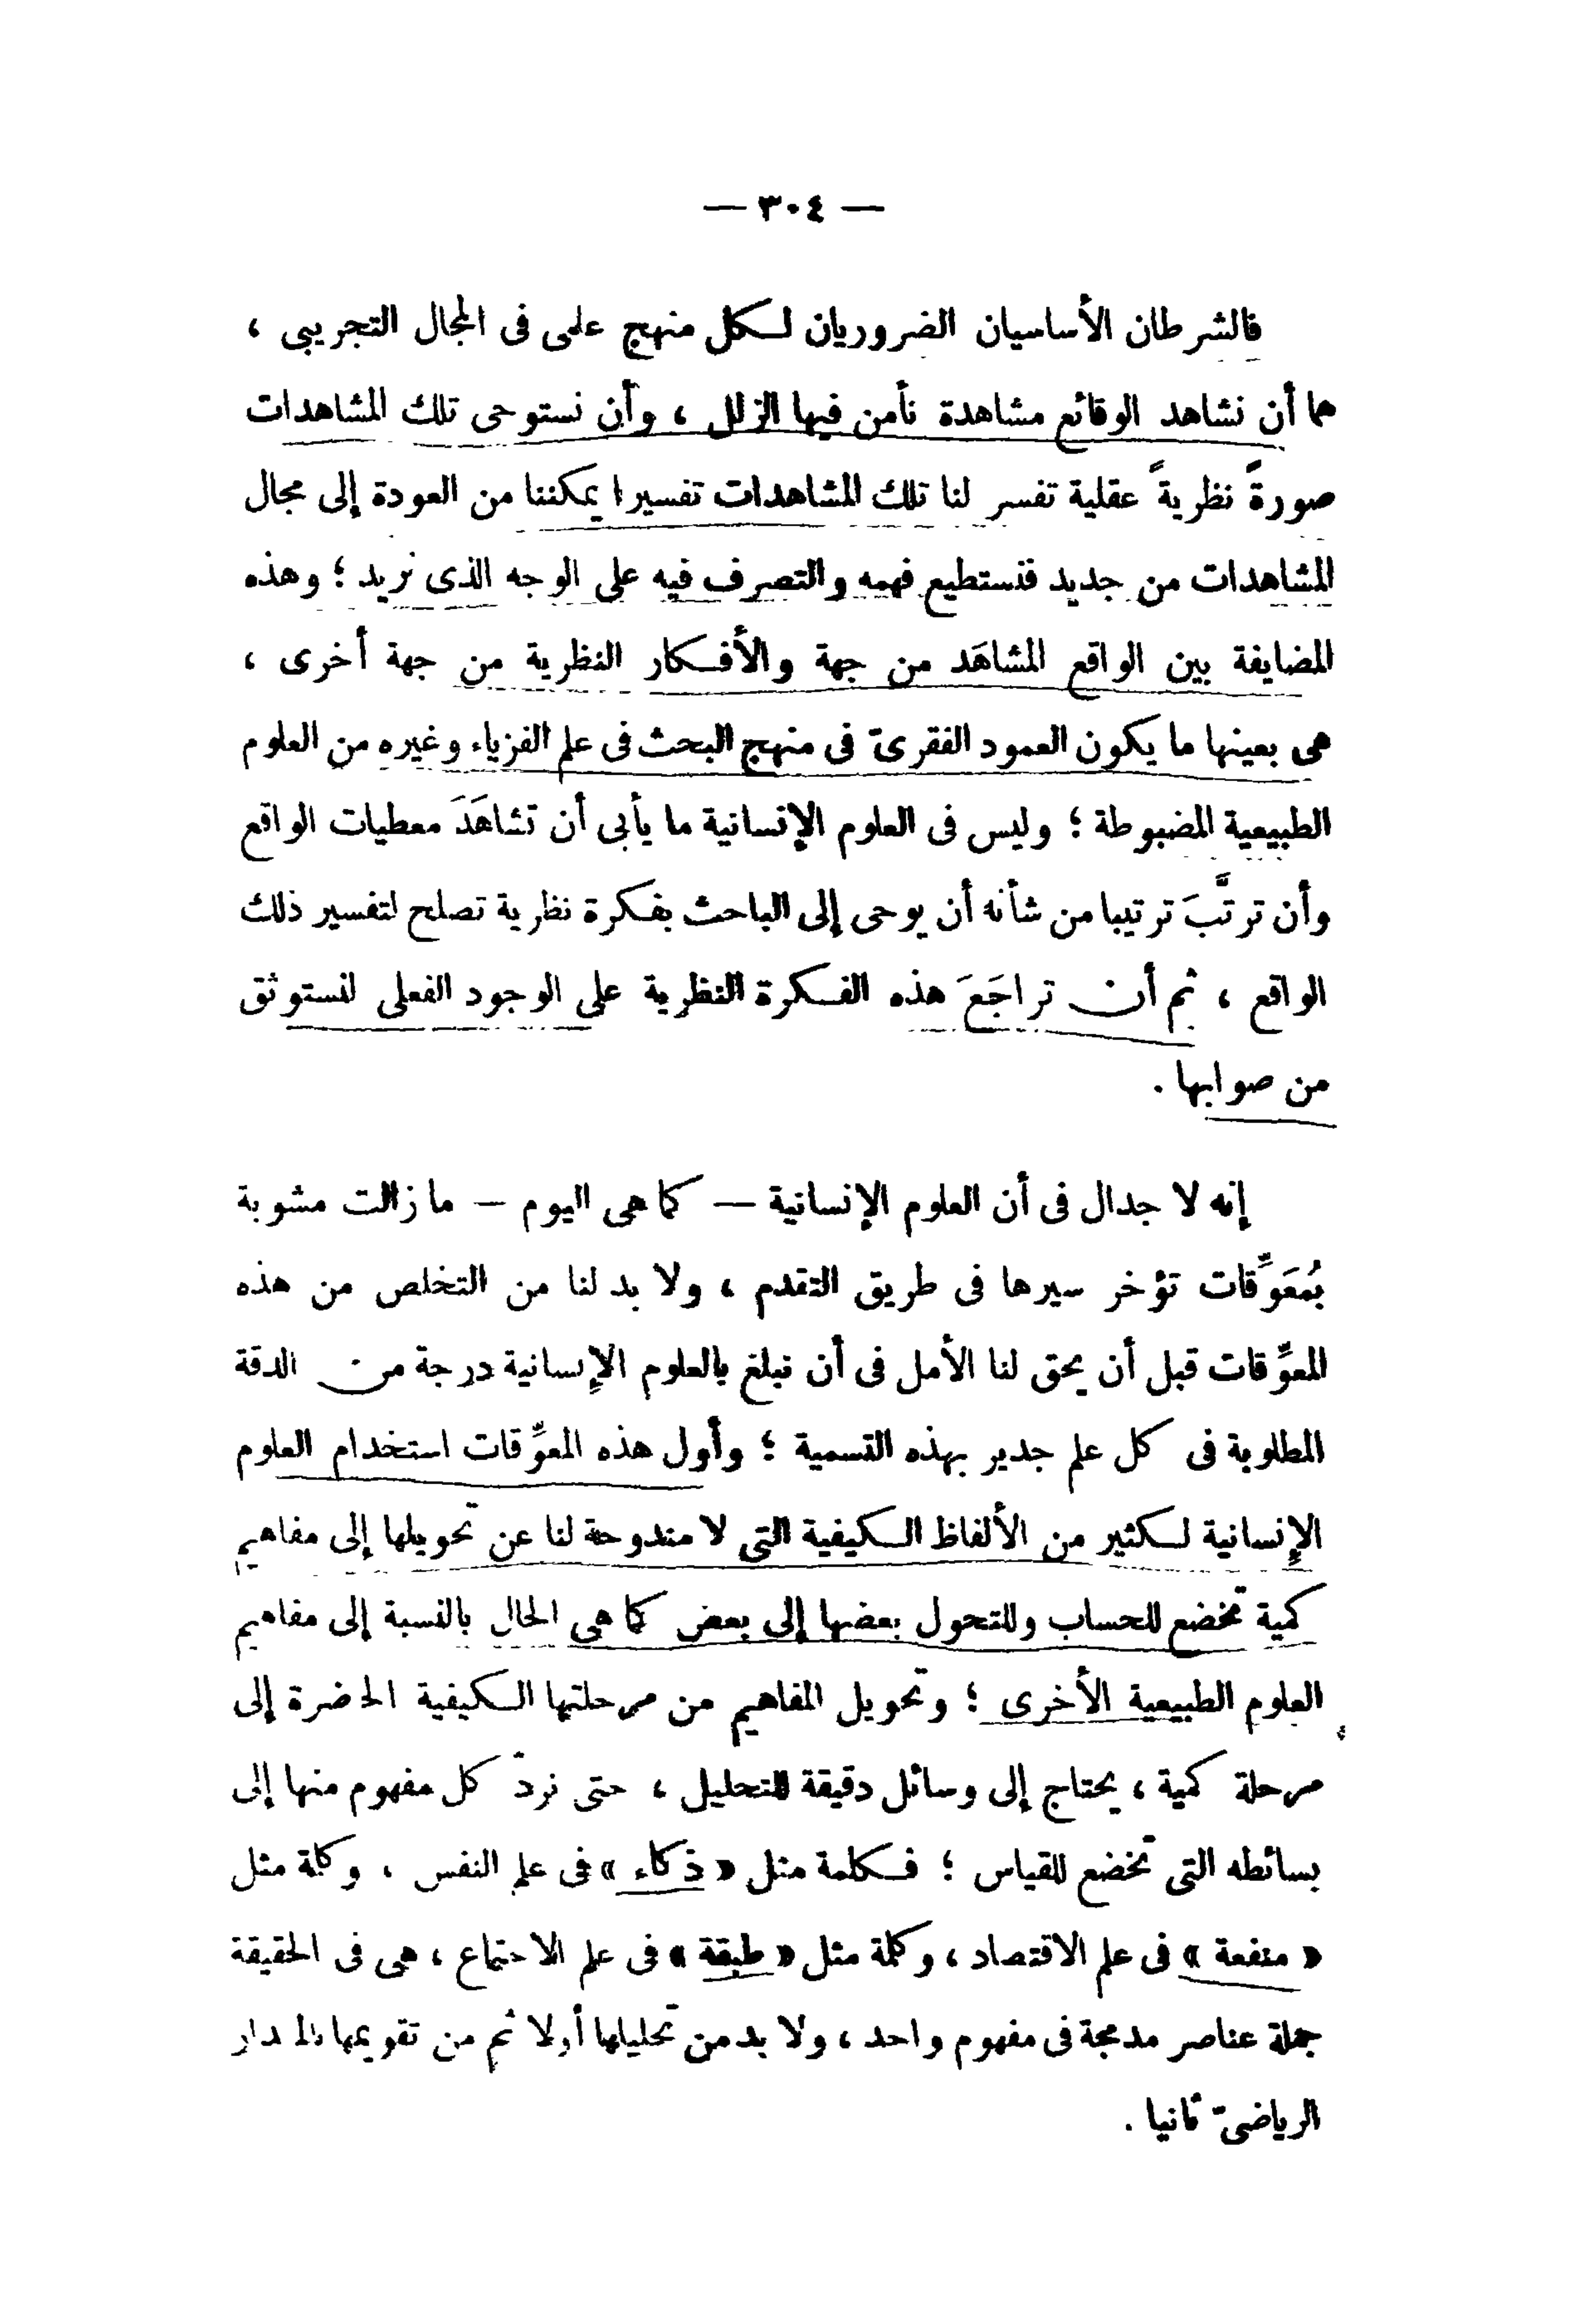 — ٣٠٤ —
فالشرطان الأساسيان الضروريان لكل منهج علمى فى المجال التجريبى ،
هما أن نشاهد الوقائع مشاهدة نأمن فيها الزلل ، وأن نستوحى تلك المشاهدات
صورةً نظريةً عقلية تفسر لنا تلك المشاهدات تفسيرا يمكننا من العودة إلى مجال
المشاهدات من جديد فنستطيع فهمه والتصرف فيه على الوجه الذى نريد ؛ وهذه
المضايفة بين الواقع المشاهَد من جهة والأفكار النظرية من جهة أخرى ،
هى بعينها ما يكون العمود الفقرىّ فى منهج البحث فى علم الفزياء وغيره من العلوم
الطبيعية المضبوطة ؛ وليس فى العلوم الإنسانية ما يأبى أن تشاهَدَ معطيات الواقع
وأن ترتَّبَ ترتيبا من شأنه أن يوحى إلى الباحث بفكرة نظرية تصلح لتفسير ذلك
الواقع ، ثم أن تراجَعَ هذه الفكرة النظرية على الوجود الفعلى لنستوثق
من صوابها .
إنه لا جدال فى أن العلوم الإنسانية — كما هى اليوم — ما زالت مشوبة
بُمعَوِّقات تؤخر سيرها فى طريق التقدم ، ولا بد لنا من التخلص من هذه
المعوِّقات قبل أن يحق لنا الأمل فى أن نبلغ بالعلوم الإنسانية درجة من الدقة
المطلوبة فى كل علم جدير بهذه التسمية ؛ وأول هذه المعوِّقات استخدام العلوم
الإنسانية لكثير من الألفاظ الكيفية التى لا مندوحة لنا عن تحويلها إلى مفاهيم
كمية تخضع للحساب وللتحول بعضها إلى بعض كما هى الحال بالنسبة إلى مفاهيم
العلوم الطبيعية الأخرى ؛ وتحويل المفاهيم من مرحلتها الكيفية الحاضرة إلى
مرحلة كمية ، يحتاج إلى وسائل دقيقة للتحليل ، حتى نردّ كل مفهوم منها إلى
بسائطه التى تخضع للقياس ؛ فكلمة مثل « ذكاء » فى علم النفس ، وكلمة مثل
« منفعة » فى علم الاقتصاد ، وكلمة مثل « طبقة » فى علم الاجتماع ، هى فى الحقيقة
جملة عناصر مدمجة فى مفهوم واحد ، ولا بد من تحليلها أولا ثم من تقويمها بالمقدار
الرياضىّ ثانيا .